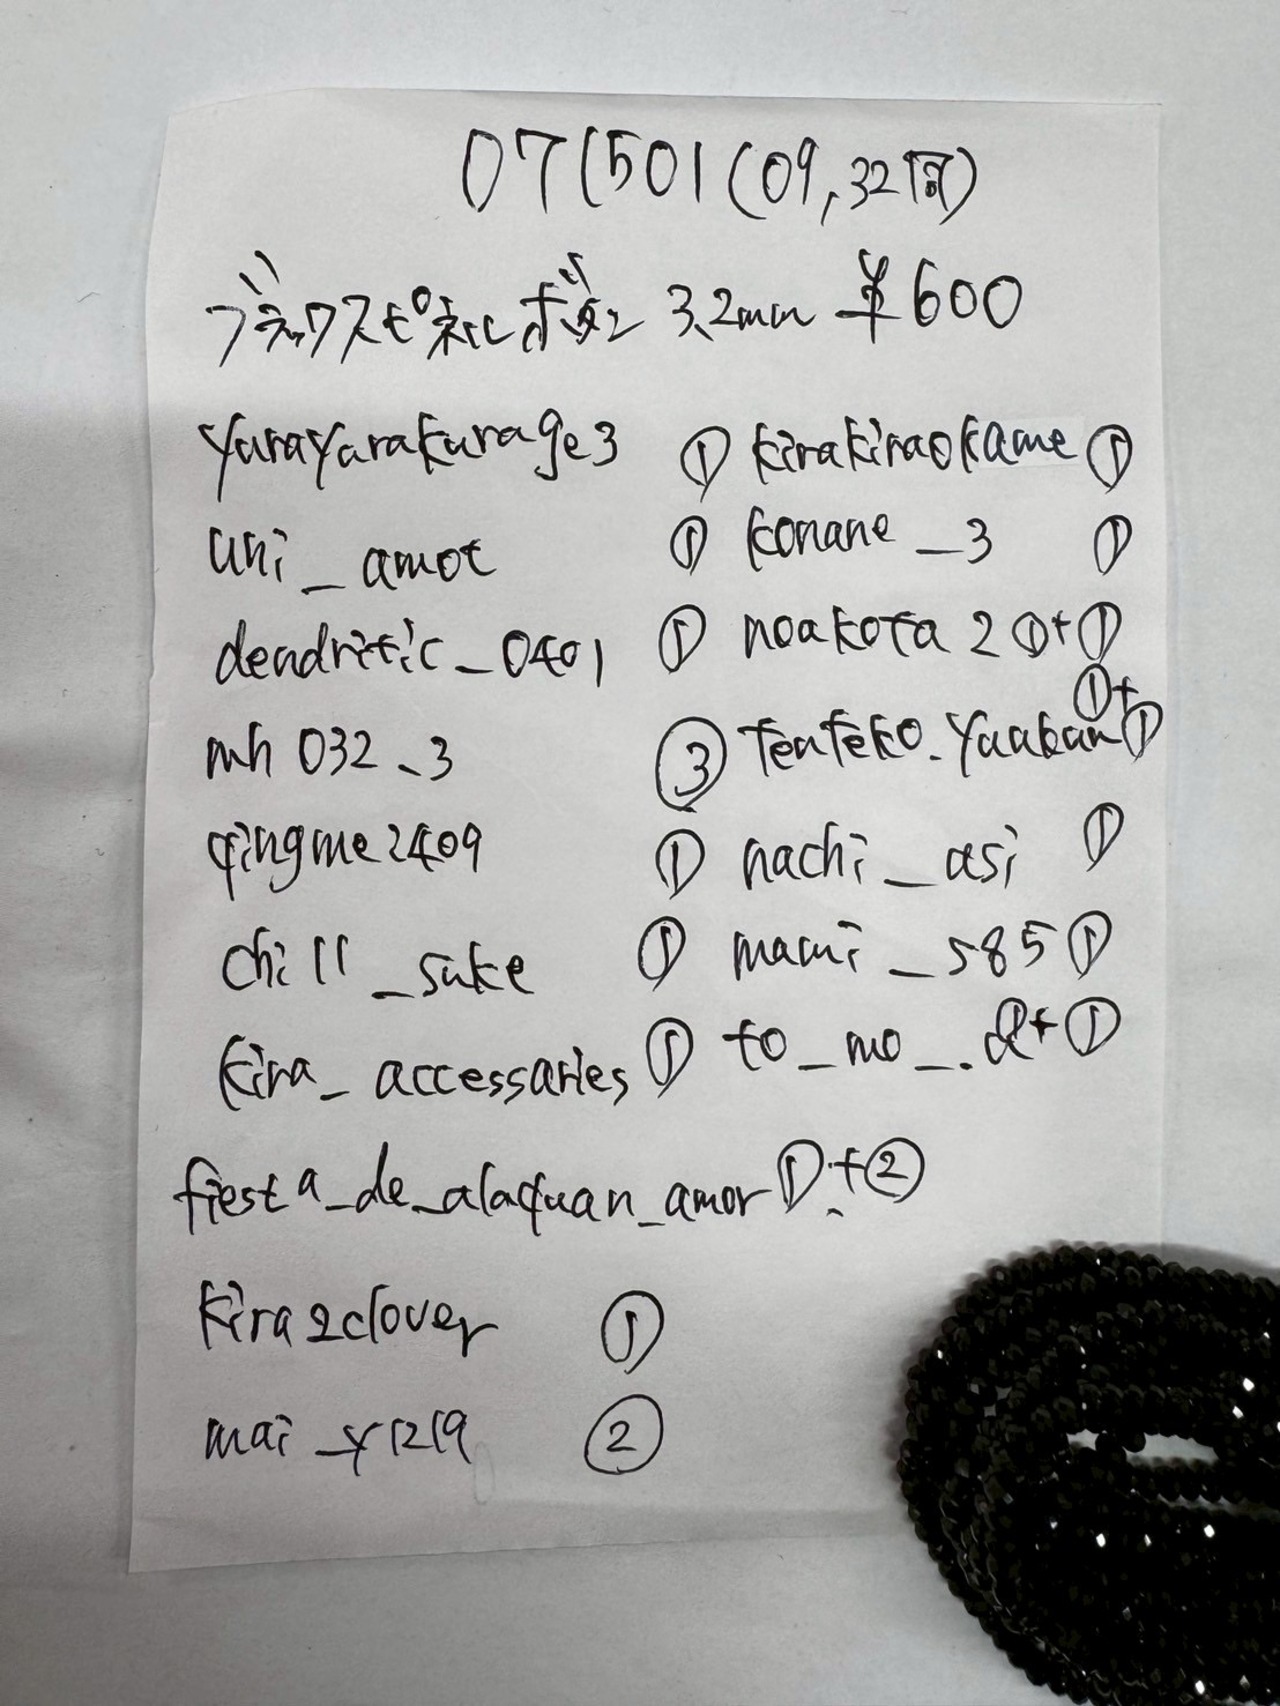 071501(09,32何)
ブラックスピネルボタン 3.2mm ¥600
yurayurakurage3 ① kirakiraokame ①
uni_amot ① konane_3 ①
dendritic_0401 ① noakota2 ①+①
mh032_3 ③ tenteko.yuukun ①+①
qingme2409 ① nachi_asi ①
chill_sake ① mami_585 ①
kira_accessaries ① to_mo__.d+①
fiesta_de_alaquan_amor ①+②
kira2clover ①
mai_y1219 ②